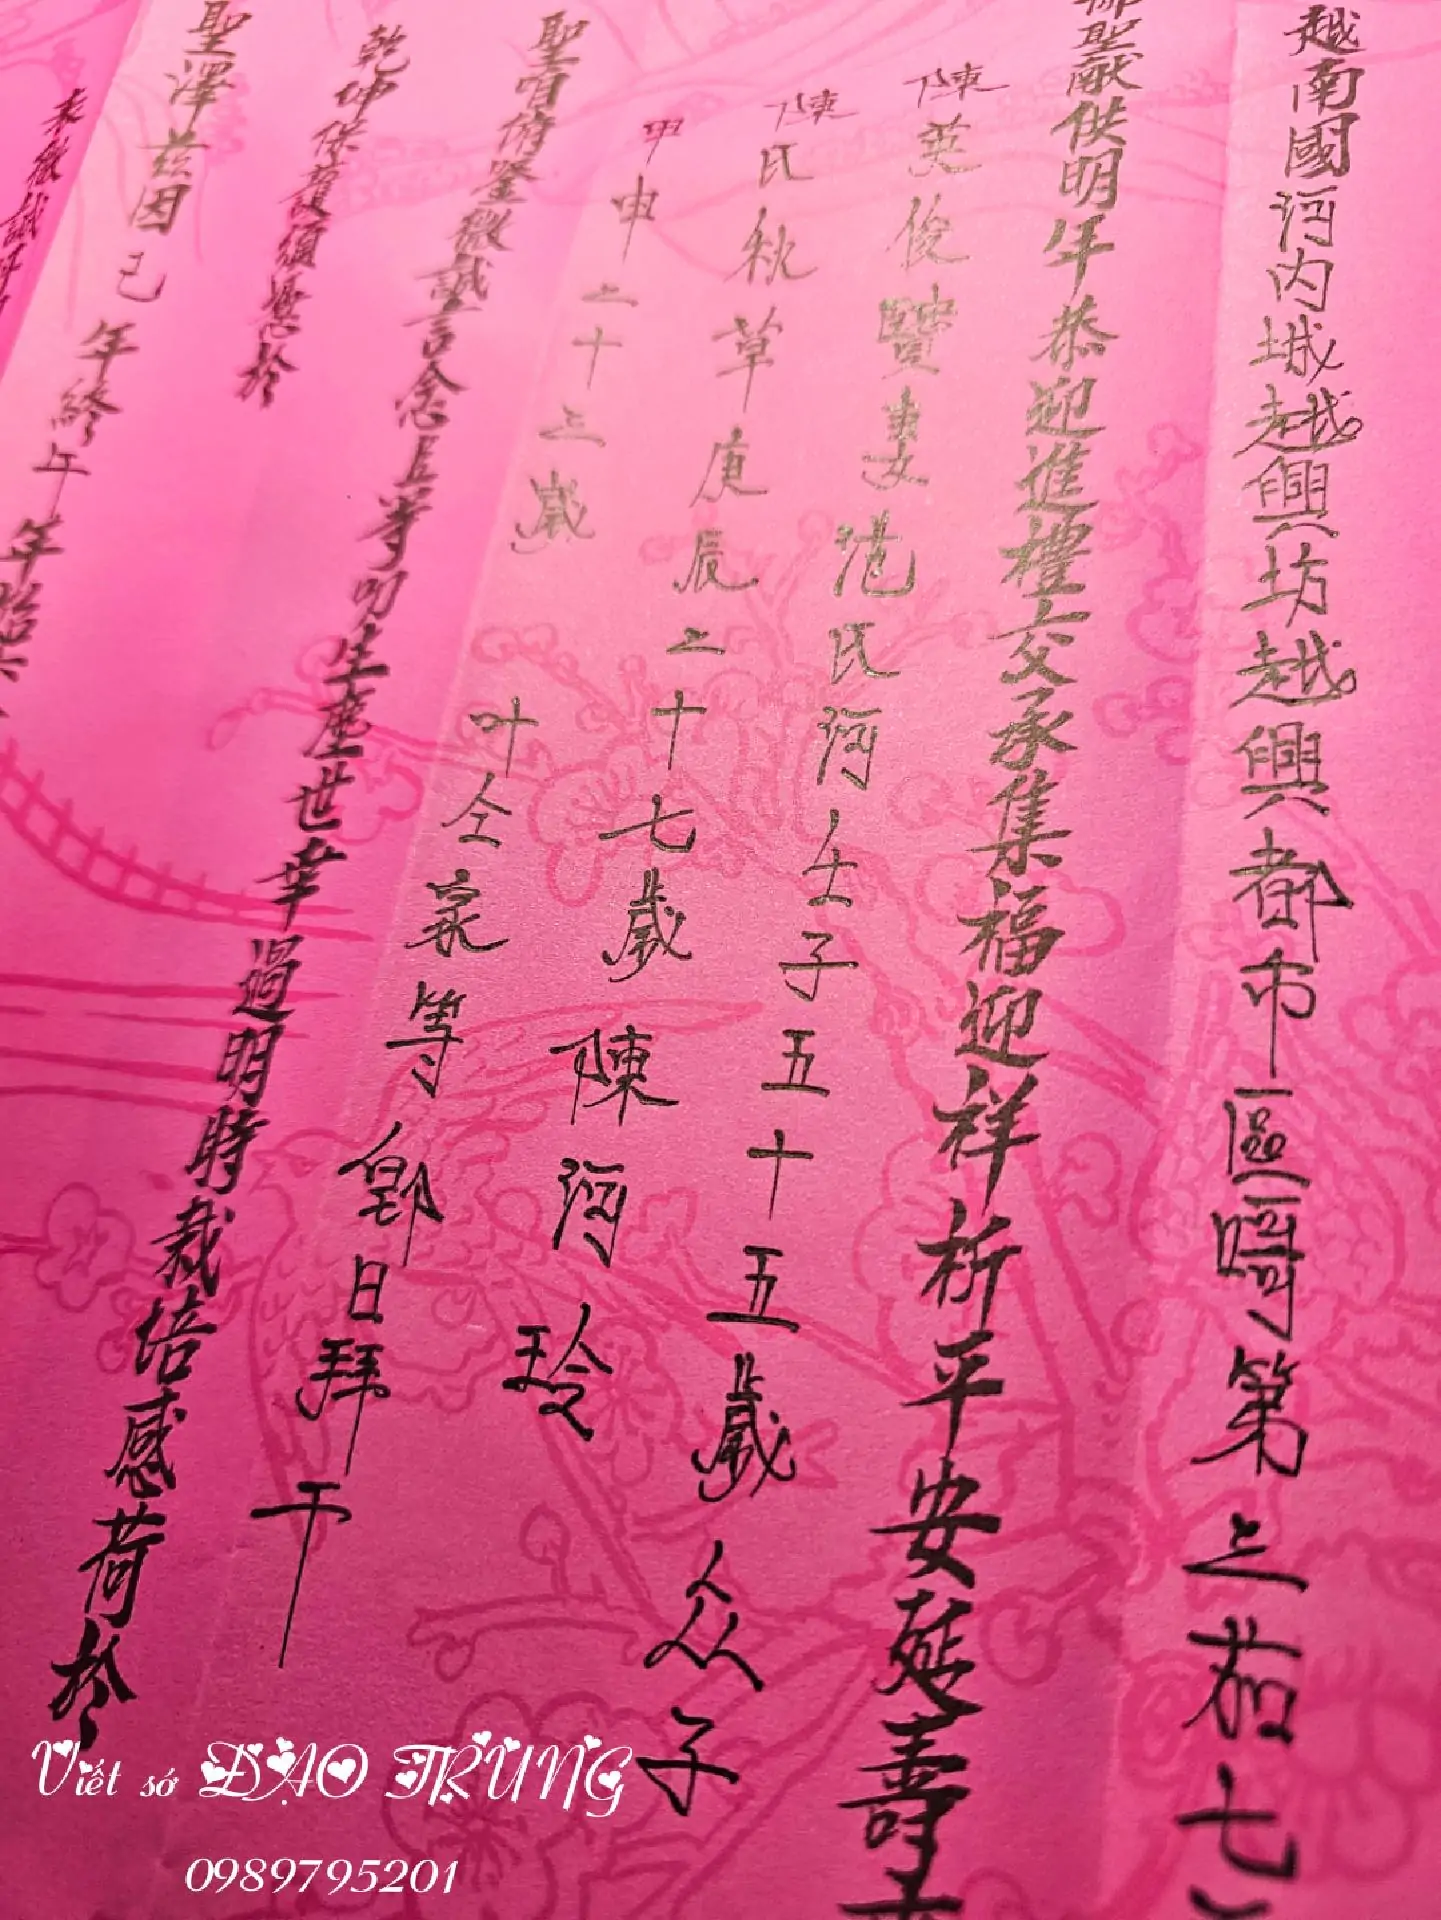 越南國河內城越興坊越興都市區𠶜第之
聖獻供明年恭迎進禮交承集福迎祥祈平安延壽
陳英俊賢妻范氏河壬子五十五歲众子
陳氏秋草庚辰二十七歲陳河玲
甲申二十三歲
叶仝家等即日拜干
聖宵俯鑒微誠言念臣等叨生塵世幸過明時栽培感荷於
乾坤保護須憑於
聖澤茲因巳年終午年
Viết sớ ĐẠO TRUNG
0989795201